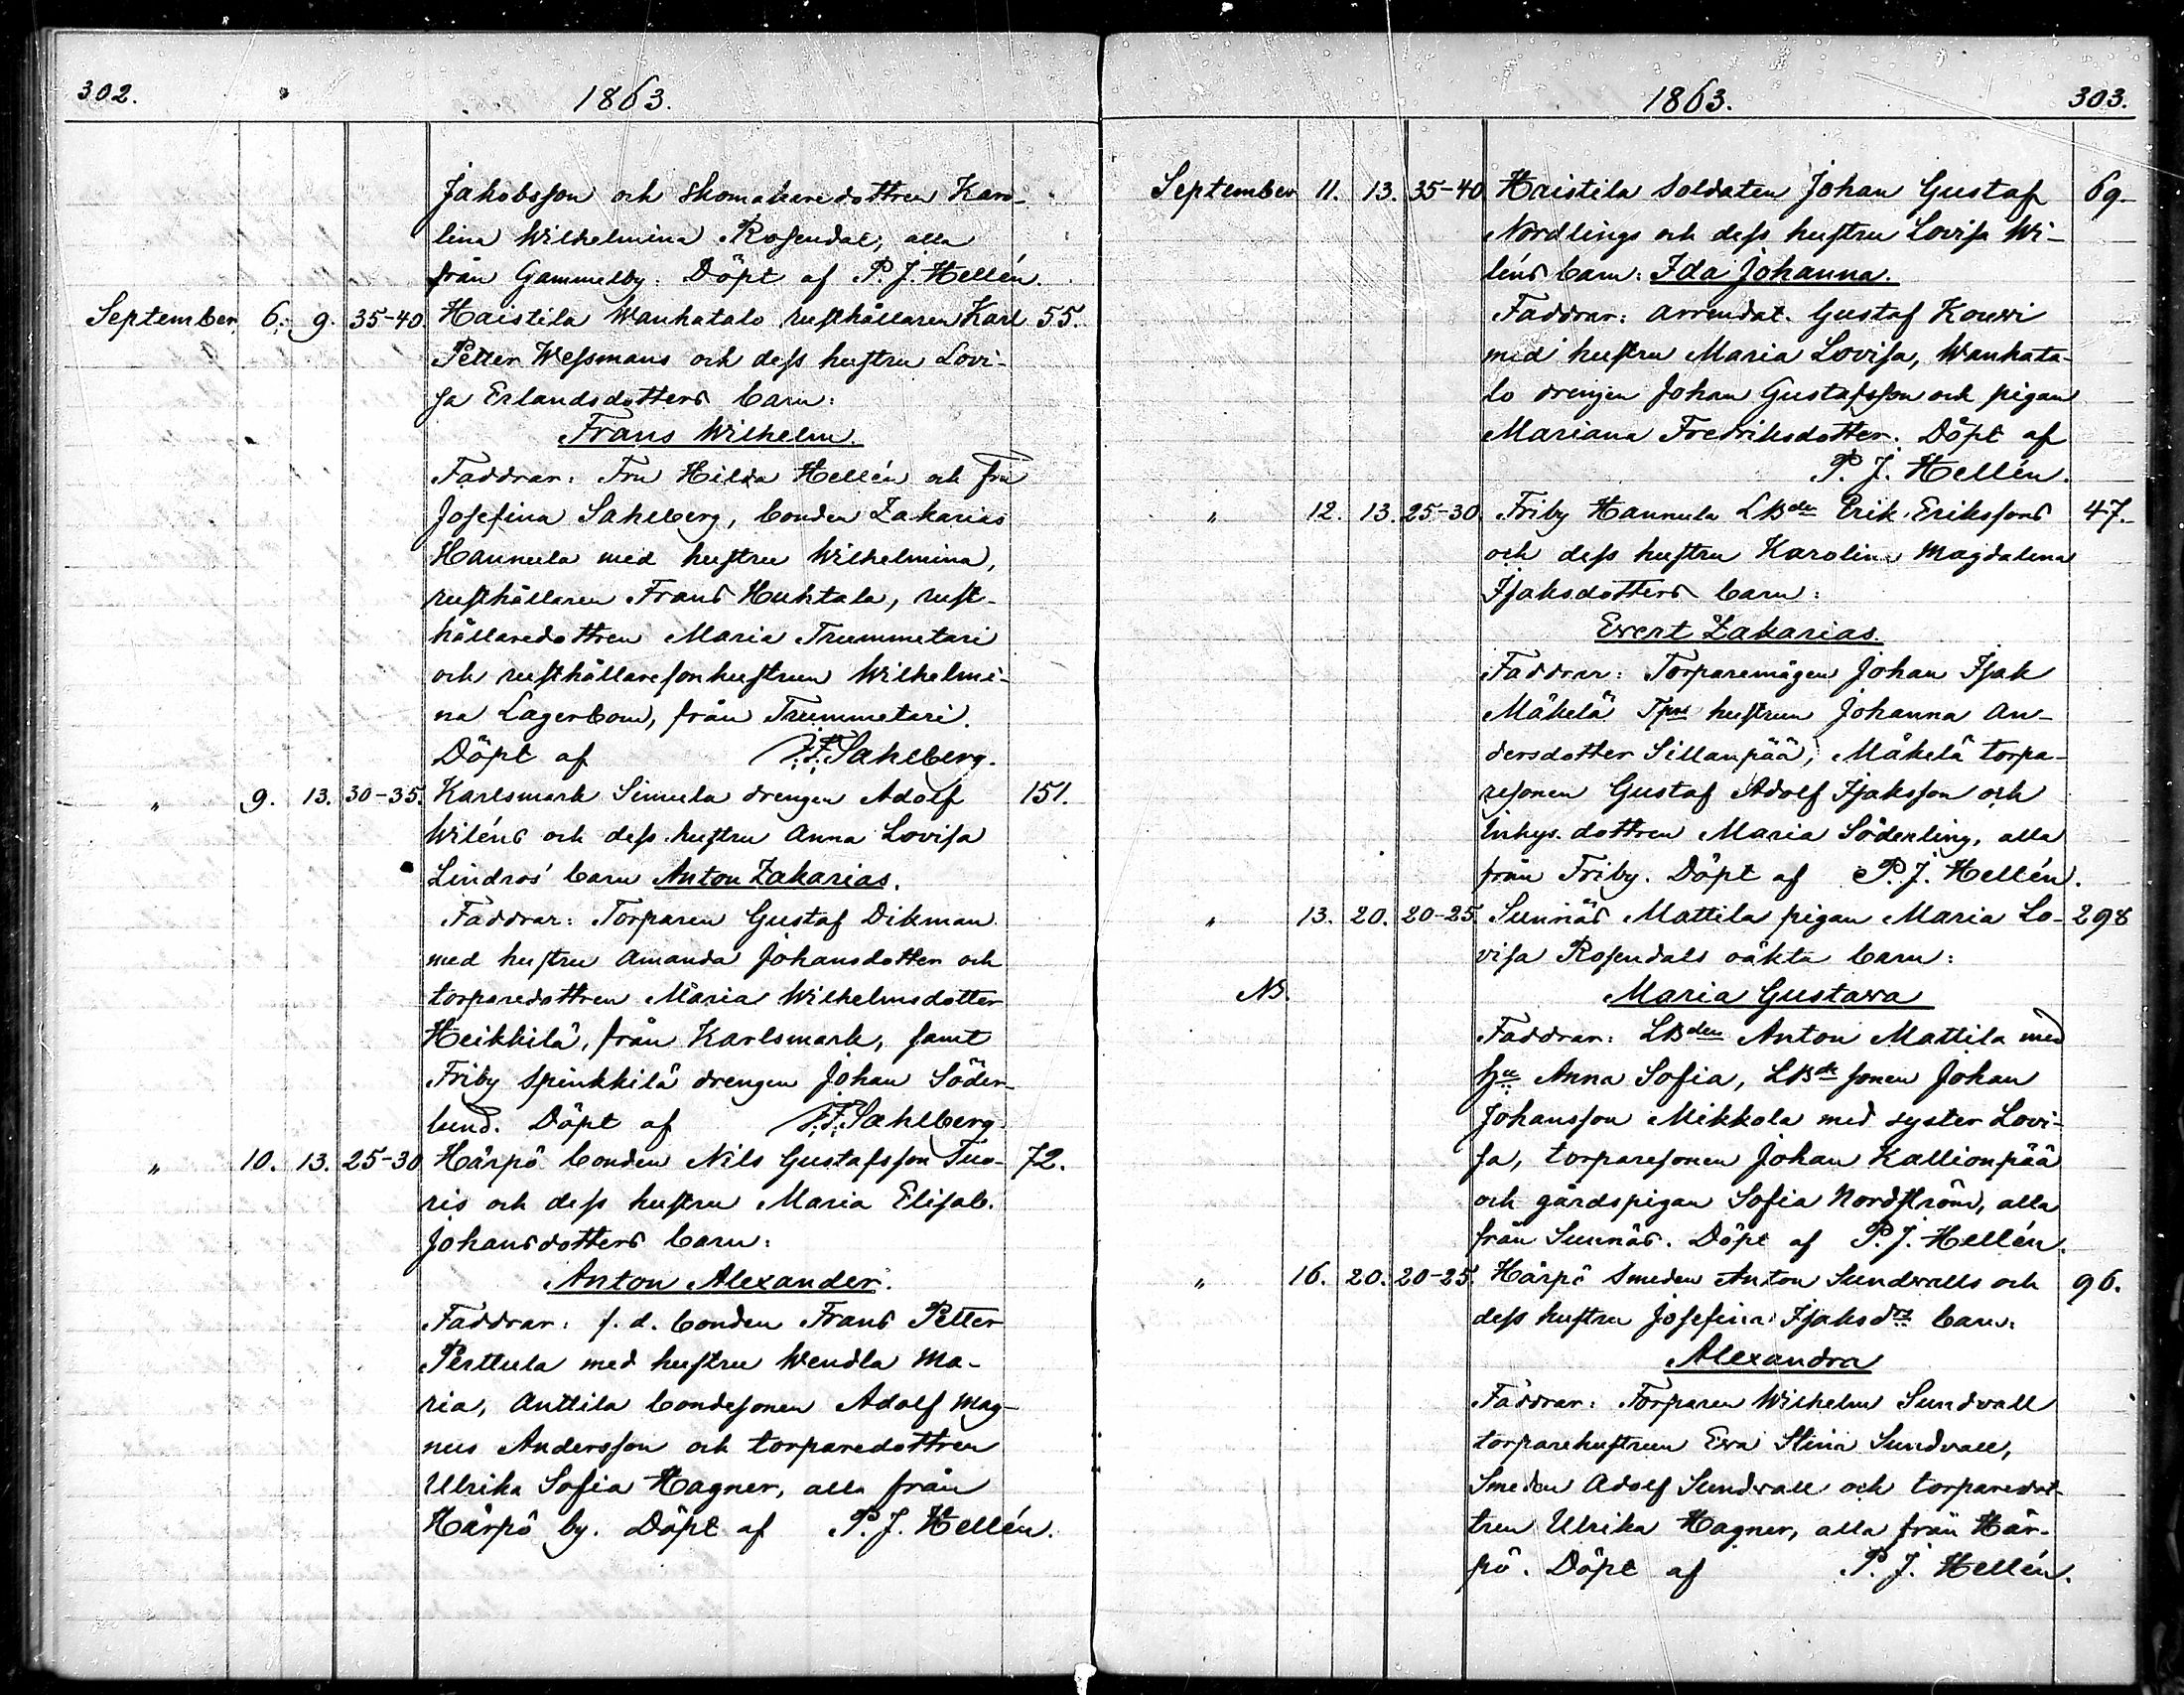 302.
1863.
Jakobsson och skomakaredottren Karo-
lina Wilhelmina Rosendal, alla
från Gammelby. Döpt af P. J. Hellén.
September 6. 9. 35-40. Haistila Wanhatalo rusthållaren Karl 55.
Petter Wessmans och dess hustru Lovi-
sa Erlandsdotters barn:
Frans Wilhelm.
Faddrar: Fru Hilda Hellén och fru
Josefina Sahlberg, bonden Zakarias
Hannula med hustru Wilhelmina,
rusthållaren Frans Huhtala, rust-
hållaredottren Maria Trummetari
och rusthållaresonhustrun Wilhelmi-
na Lagerbom, från Trummetari.
Döpt af F. F. Sahlberg.
" 9. 13. 30-35. Karlsmark Simula drengen Adolf 151.
Wiléns och dess hustru Anna Lovisa
Lindros' barn Anton Zakarias.
Faddrar: Torparen Gustaf Dikman
med hustru Amanda Johansdotter och
torparedottren Maria Wilhelmsdotter
Heikkilä, från Karlsmark, samt
Friby Spinkkilä drengen Johan Söder-
lund. Döpt af F. F. Sahlberg.
" 10. 13. 25-30 Härpö bonden Nils Gustafsson Tuo- 72.
ris och dess hustru Maria Elisab.
Johansdotters barn:
Anton Alexander.
Faddrar: f. d. bonden Frans Petter
Perttula med hustru Wendla Ma-
ria, Anttila bondesonen Adolf Mag-
nus Andersson och torparedottren
Ulrika Sofia Hagner, alla från
Härpö by. Döpt af P. J. Hellén.
1863.
303.
September 11. 13. 35-40 Haistila Soldaten Johan Gustaf 69.
Nordlings och dess hustru Lovisa Wi-
léns barn: Ida Johanna.
Faddrar: arrendat. Gustaf Kouvi
med hustru Maria Lovisa, Wanhata-
lo drengen Johan Gustafsson och pigan
Mariana Fredriksdotter. Döpt af
P. J. Hellén.
" 12. 13. 25-30. Friby Hannula LBden Erik Erikssons 47.
och dess hustru Karolina Magdalena
Isaksdotters barn:
Evert Zakarias.
Faddrar: Torparemågen Johan Isak
Mäkelä Tpre hustrun Johanna An-
dersdotter Sillanpää, Mäkelä torpa-
resonen Gustaf Adolf Isaksson och
Inhys. dottren Maria Söderling, alla
från Friby. Döpt af P. J. Hellén.
" 13. 20. 20-25. Sunnäs Mattila pigan Maria Lo- 298
visa Rosendals oäkta barn:
NB. Maria Gustava
Faddrar: LBden Anton Mattila med
hu Anna Sofia, LBde sonen Johan
Johansson Mikkola med syster Lovi-
sa, torparesonen Johan Kallionpää
och gårdspigan Sofia Nordström, alla
från Sunnäs. Döpt af P. J. Hellén.
" 16. 20. 20-25. Härpö Smeden Anton Sundvalls och 96.
dess hustru Josefina Isaksdrs barn:
Alexandra
Faddrar: Torparen Wilhelm Sundvall
torparehustrun Eva Stina Sundvall,
Smeden Adolf Sundvall och torparedot-
tren Ulrika Hagner, alla från Här-
pö. Döpt af P. J. Hellén.